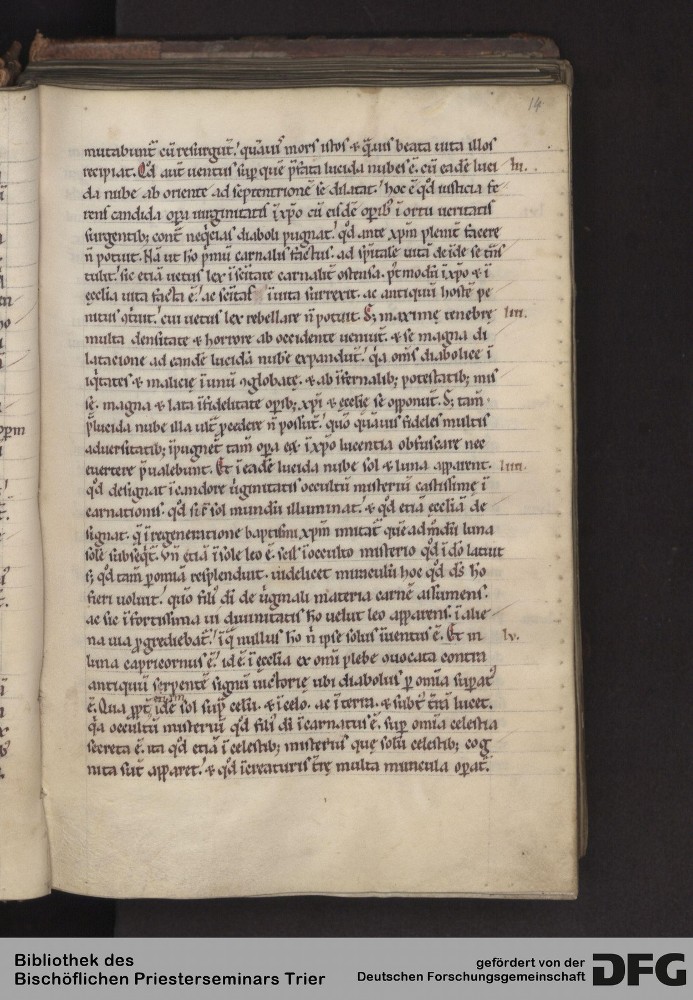 14
mutabunt̄ cū resurgūt. quāuis mors istos & q̄uis beata uita illos
recipiat. Qd̄ aut̄ uentus sup̄ que p̄fata lucida nubes ē. cū eadē luci
lii.
da nube ab oriente ad septentrionē se dilatat. hoc ē qd̄ iusticia fe
rens candida op̄a uirginitatis ī xp̄o cū eisdē op̄ib; ī ortu ueritatis
surgentib; cont̄ neq̄cias diaboli pugnat. qd̄ ante xp̄m plenit̄ facere
n̄ potuit. Nā ut ho p̄mū carnalis factus. ad sp̄itale uitā deīde se trās
tulit. sic etiā uetus lex ī sc̄itate carnalit̄ ostensa. p̄t modū ī xp̄o & ī
ęcclia uita facta ē. ac sc̄itas ī uita surrexit. ac antiquū hostē pe
nitus ꝯtiuit. cui uetus lex rebellare n̄ potuit. S; maximę tenebrę
liii.
multa densitate & horrore ab occidente ueniūt. & se magna di
latacione ad eandē lucidā nubē expandūt. q̄a om̄s diabolicę ī
iq̄tates & malicię ī unū ꝯglobatę. & ab īfernalib; potestatib; mis
sę. magna & lata īfidelitate op̄ib; xp̄i & ęcclię se opponūt. S; tam̄
p̄ lucida nube illa ult̄ p̄cedere n̄ possūt. quō quāuis fideles multis
aduersitatib; īpugnēt tam̄ op̄a eꝝ ī xp̄o lucentia obfuscare nec
euertere p̄ualebunt. Et ī eadē lucida nube sol & luna apparent.
liiii.
qd̄ designat ī candore uirginitatis occultū misteriū castissimę ī
carnationis. qd̄ sic̄ sol mundū illuminat. & qd̄ etiā ęccliā de
signat. q̄ ī regeneratione baptismi xp̄m imitat̄ quēadmdū luna
solē subseq̄t̄. Vn̄ etiā ī sole leo ē. scil ī occulto misterio qd̄ ī dō latuit
s; qd̄ tam̄ p̄ omia resplenduit. uidelicet munculū hoc qd̄ ds̄ hō
fieri uoluit. quō fili᷒ di de uirginali materia carnē assumens.
ac sic ī fortissima ui diuinitatis hō uelut leo apparens. ī alie
na uia p̄grediebat̄. ī q̄ nullus hō n̄ ipse solus īuentus ē. Et in
lv.
luna capricornus ē. id ē ī ęcclia ex omi plebe uocata contra
antiquū serpentē signū uictorię ubi diabolus p̄ omīa sup̄at᷒
ē. Qua pp̄t̄ idē sol sup̄ celū. & ī celo. ac ī terra. & subt᷒ t̄rā lucet.
q̄a occultū misteriū qd̄ fili᷒ di īcarnatus ē. sup̄ omīa celestia
secreta ē. ita qd̄ etiā ī celestib; misteriis quę solū celestib; cog
nita sūt apparet. & qd̄ ī creaturis t̄rę multa muncula op̄at̄.
Bibliothek des
Bischöflichen Priesterseminars Trier
gefördert von der
Deutschen Forschungsgemeinschaft
DFG